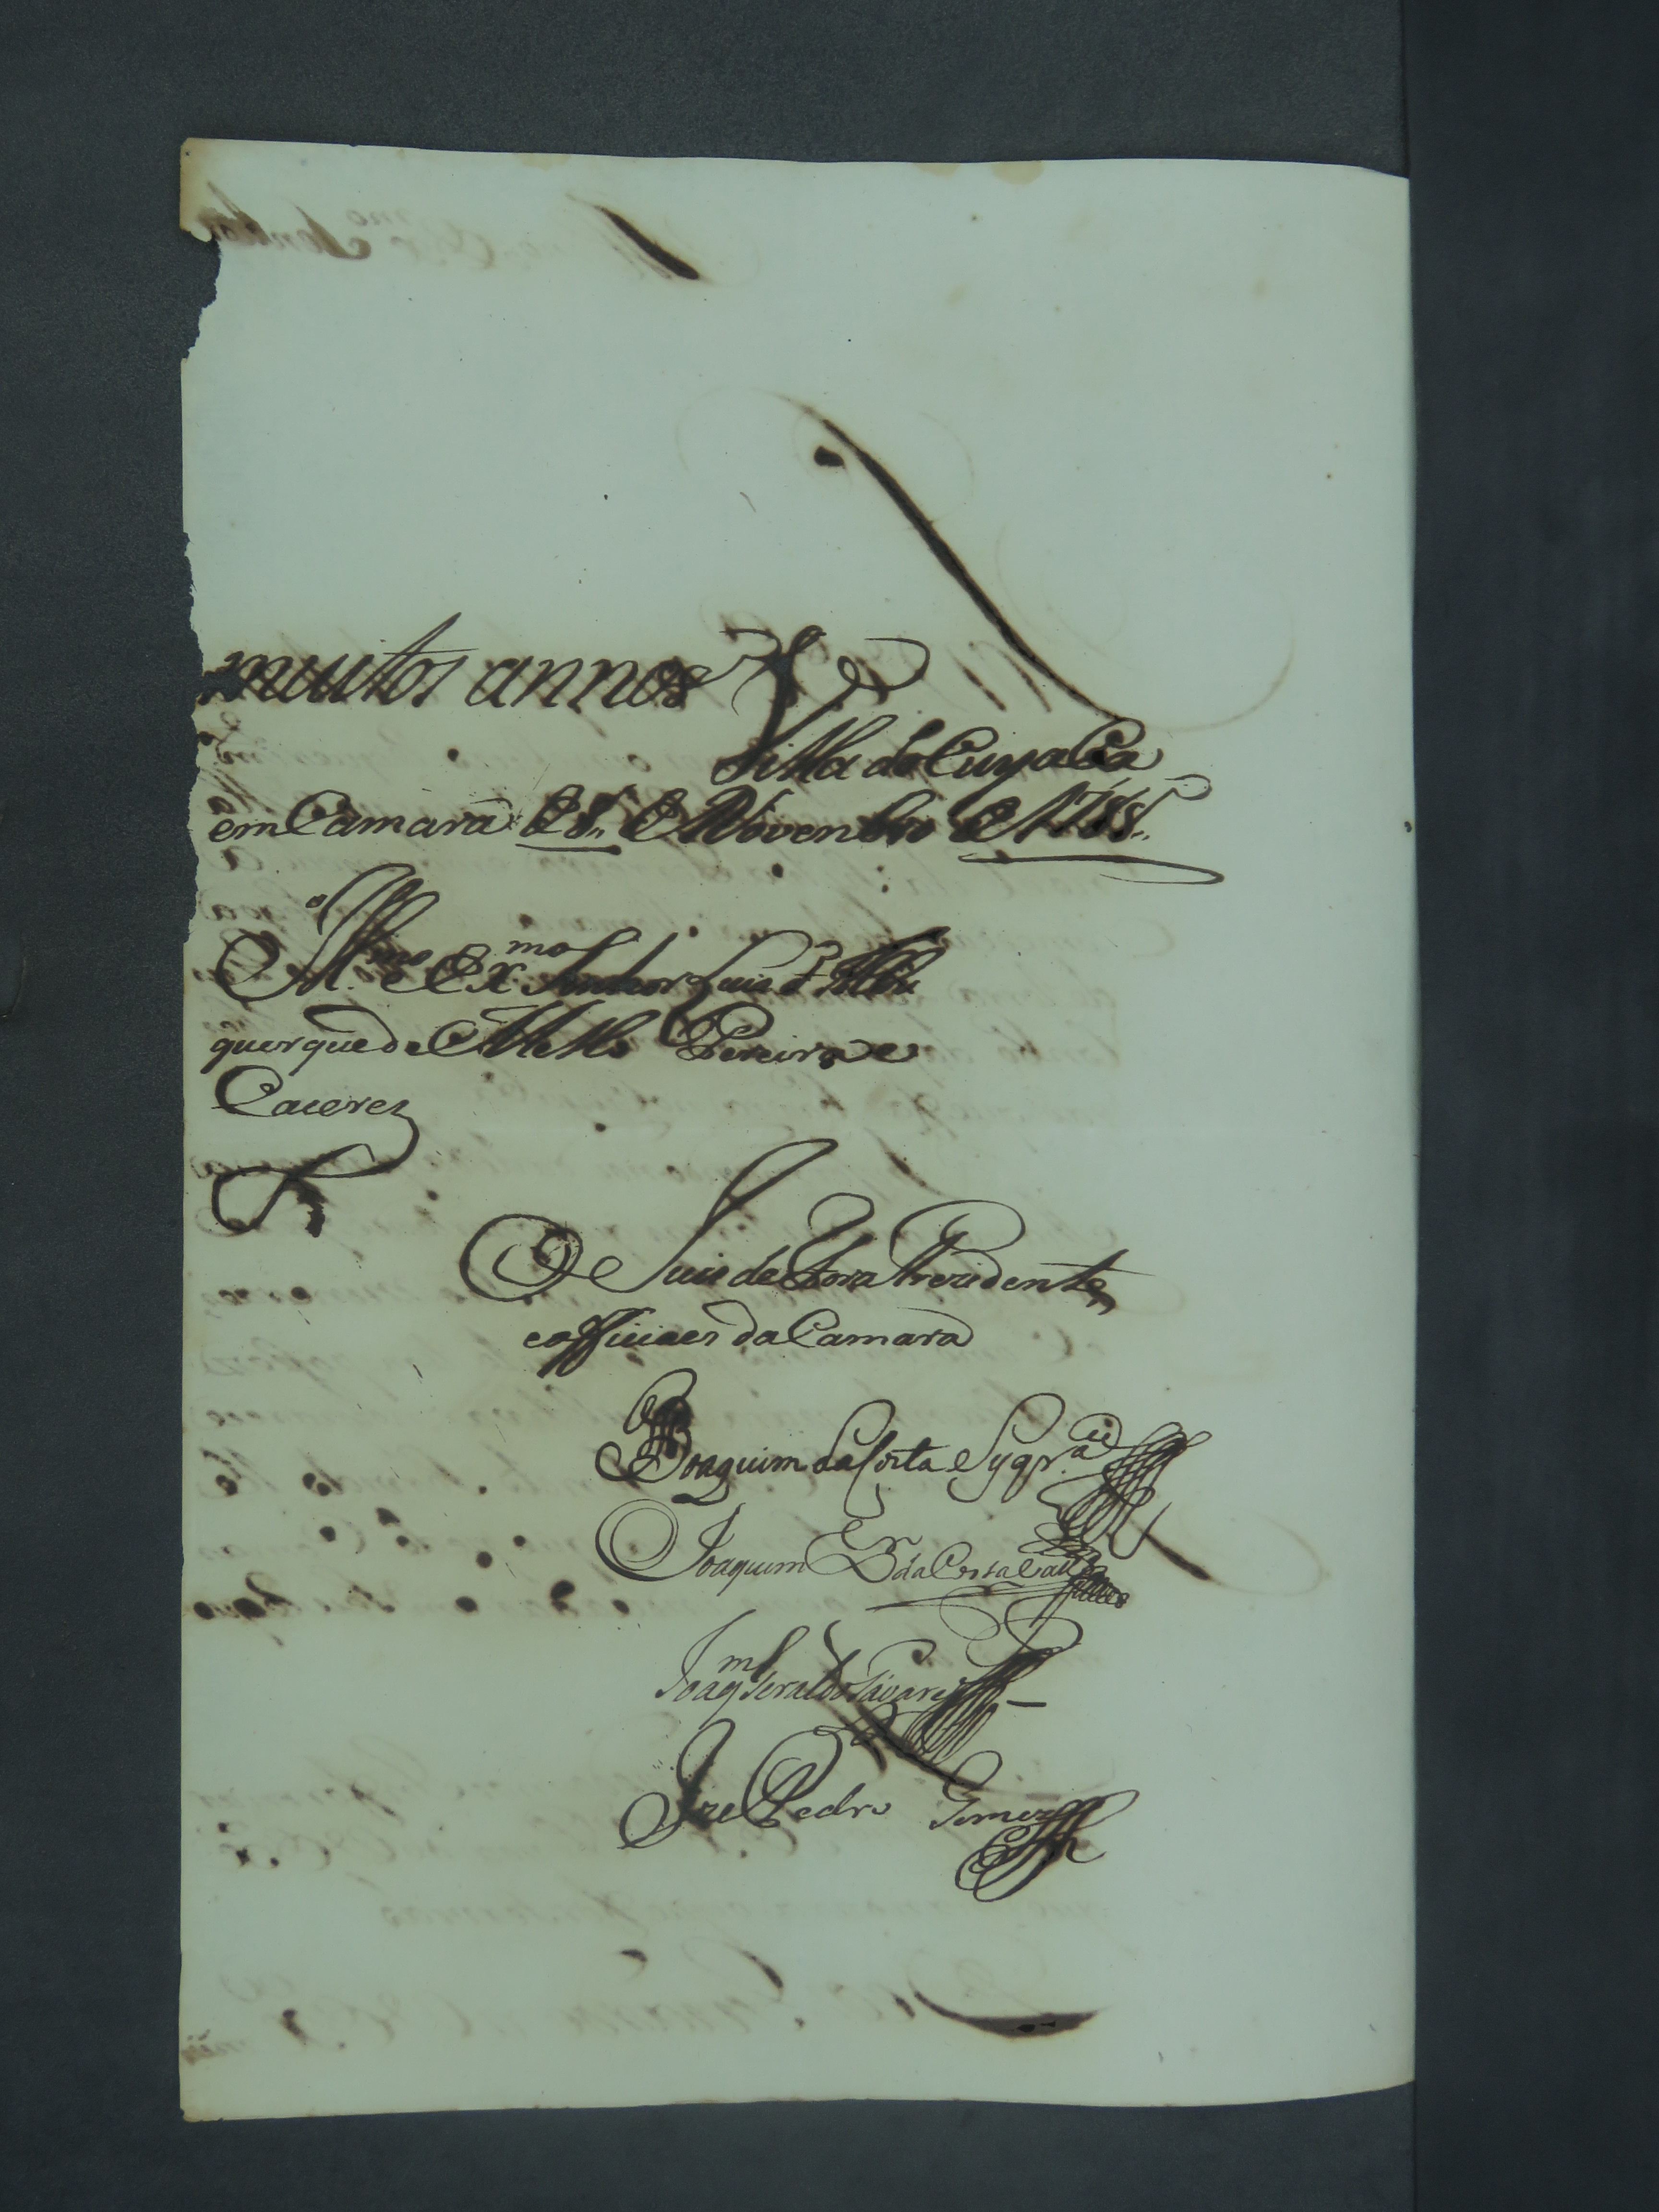 muitos annos
Villa do Cuyaba
em Camara de 8 de Novembro de 1788
Ill.mo e Ex.mo Senhor Luis d' Albu
querque de Mello Pereira e
Caceres
O Juis de Fora Prezidente,
e officiaes da Camara
Joaquim da Costa Syqr.a
Joaquim da Costa
Joaqm Geraldo Tavares
Jze Pedro Gomes